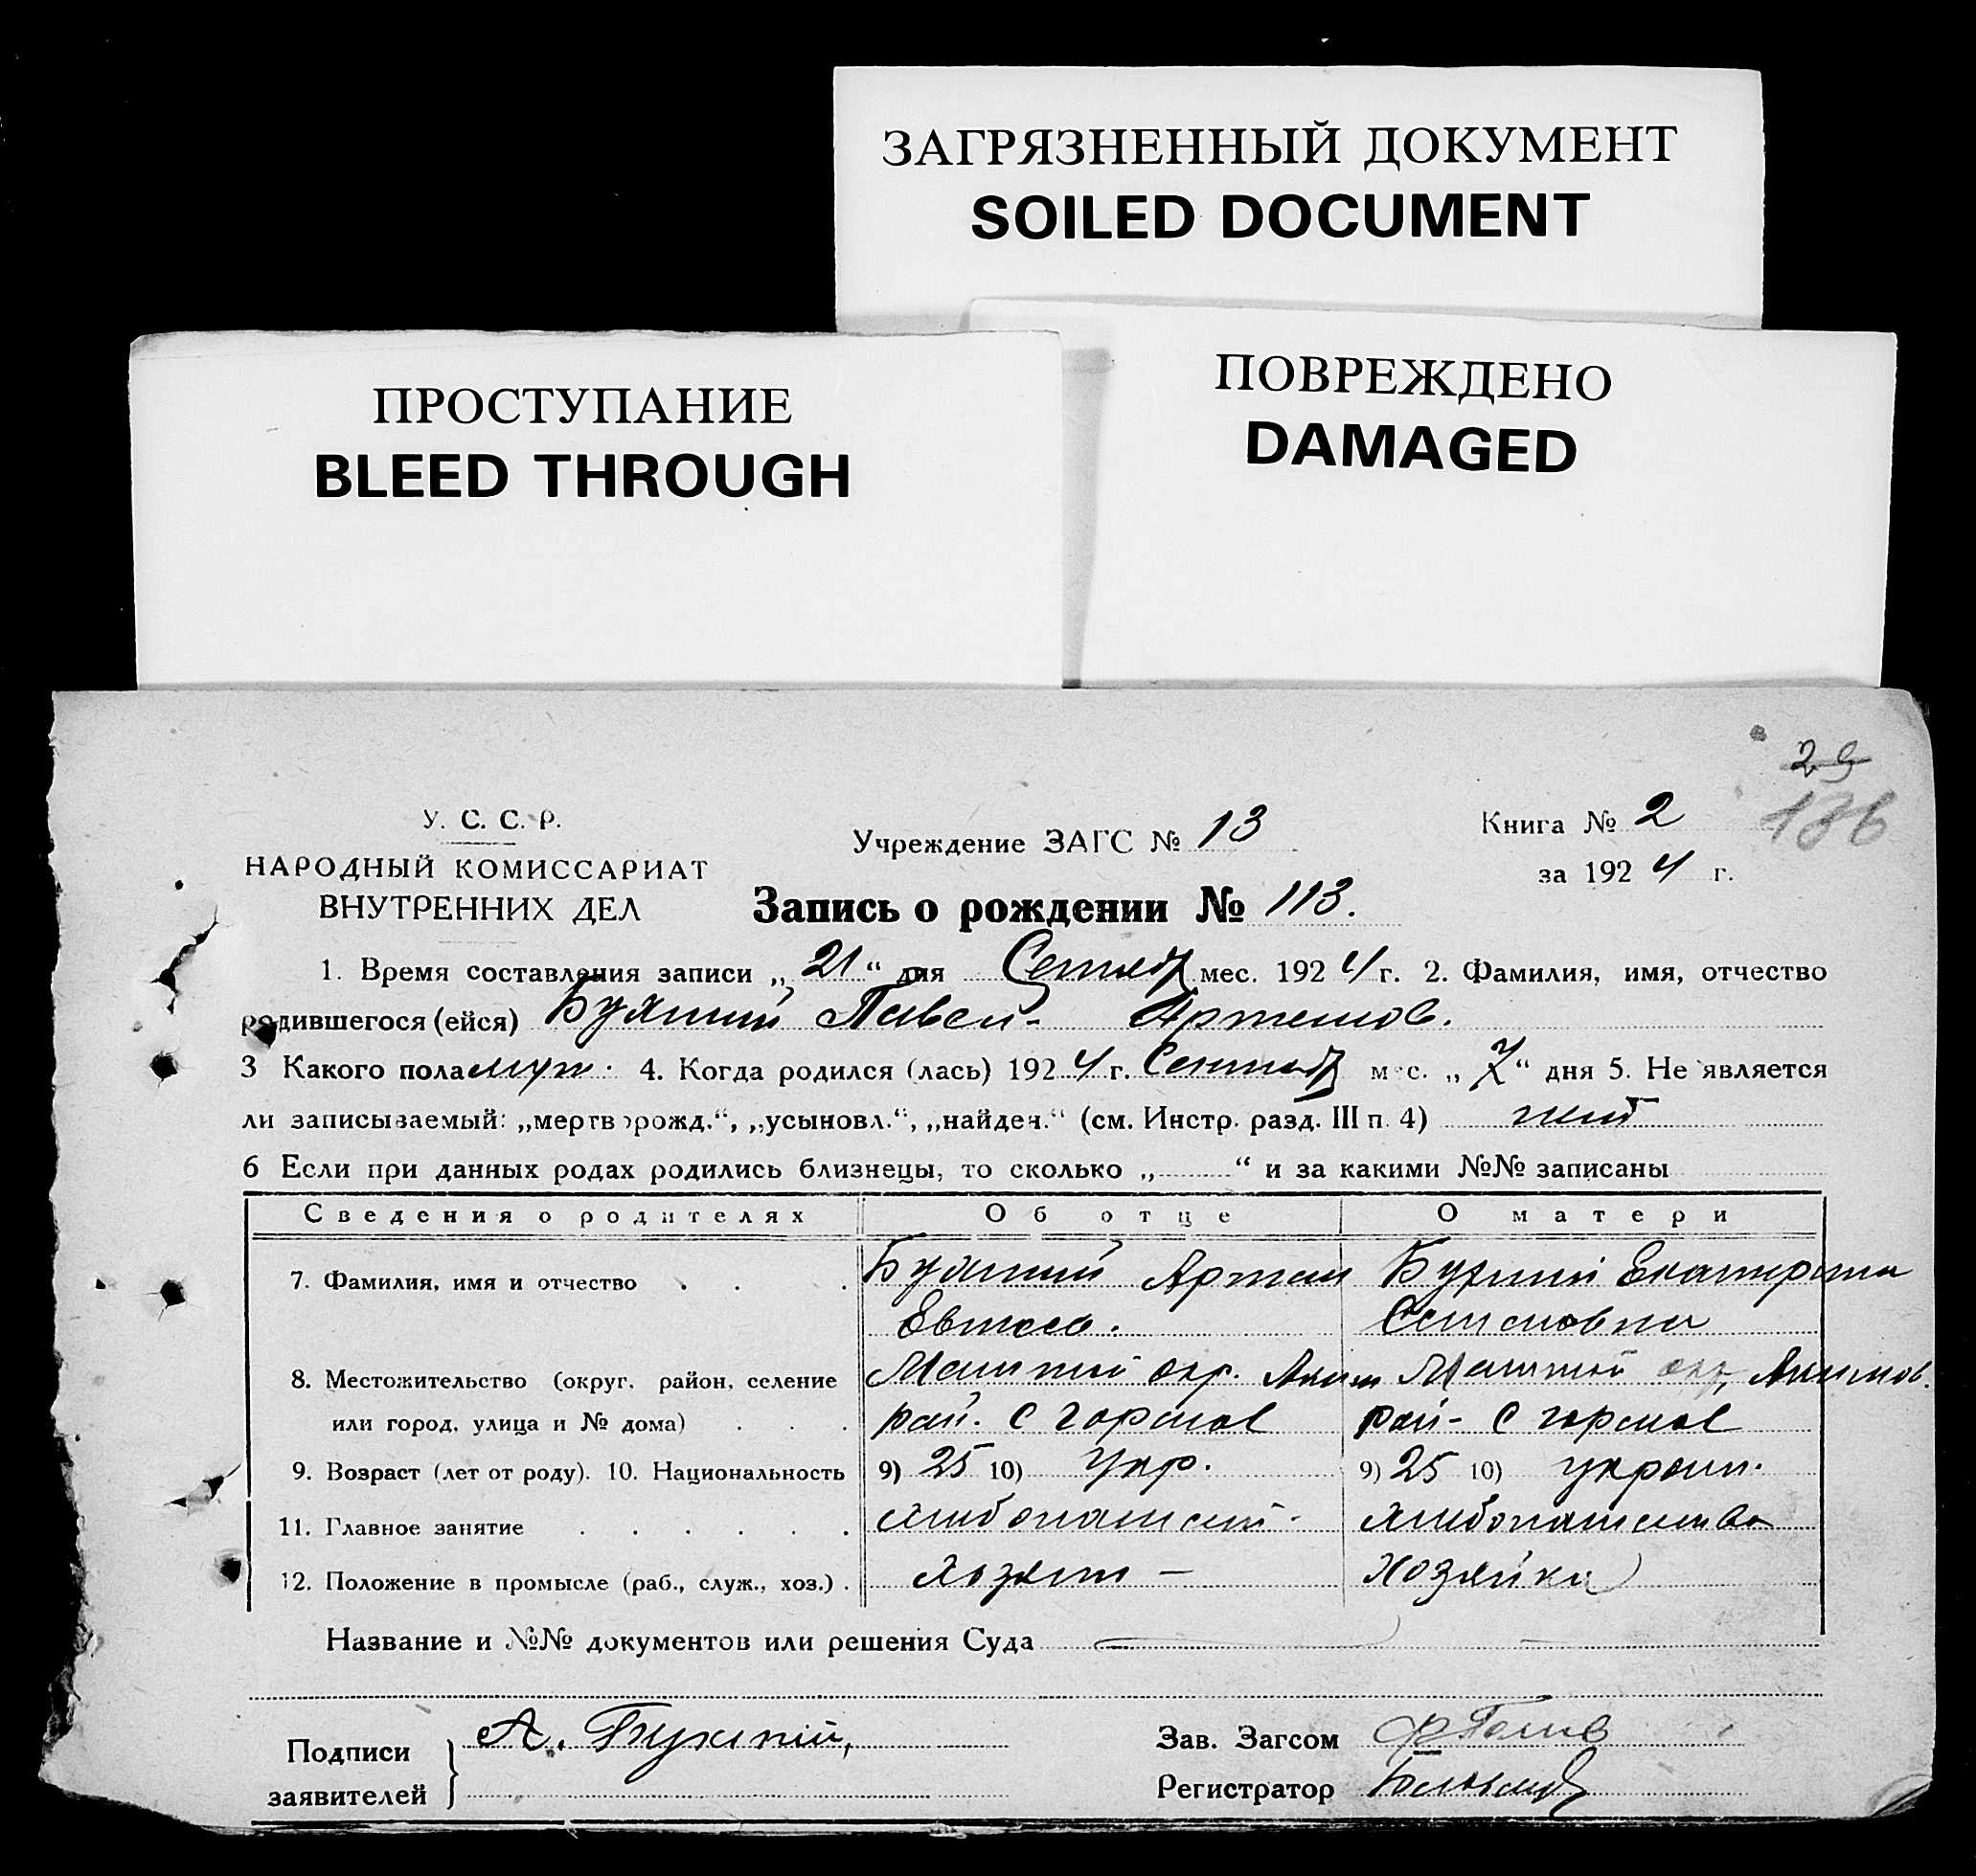 ЗАГРЯЗНЕННЫЙ ДОКУМЕНТ
SOILED DOCUMENT
ПОВРЕЖДЕНО
DAMAGED
ПРОСТУПАНИЕ
BLEED THROUGH
29
136
У. С. С. Р.
НАРОДНЫЙ КОМИССАРИАТ
ВНУТРЕННИХ ДЕЛ
Учреждение ЗАГС № 13
Книга № 2
за 1924 г.
Запись о рождении № 113.
1. Время составления записи „21“ дня мес. 1924 г. 2. Фамилия, имя, отчество
родившегося (ейся) Павел Артемов.
3 Какого пола муж. 4. Когда родился (лась) 1924 г. мес. „7“ дня 5. Не является
ли записываемый: „мертворожд.“, „усыновл.“, „найден.“ (см. Инстр. разд. III п. 4)
6 Если при данных родах родились близнецы, то сколько „ “ и за какими №№ записаны
Сведения о родителях Об отце О матери
7. Фамилия, имя и отчество Артем Екатерина
Семеновна
8. Местожительство (округ, район, селение окр. Аким окр, Акимов.
или город, улица и № дома) рай. с рай- с
9. Возраст (лет от роду). 10. Национальность 9) 25 10) Укр. 9) 25 10) украин.
11. Главное занятие
12. Положение в промысле (раб., служ., хоз.). хозяин – хозяйка
Название и №№ документов или решения Суда
Подписи
заявителей
А.
Зав. Загсом
Регистратор